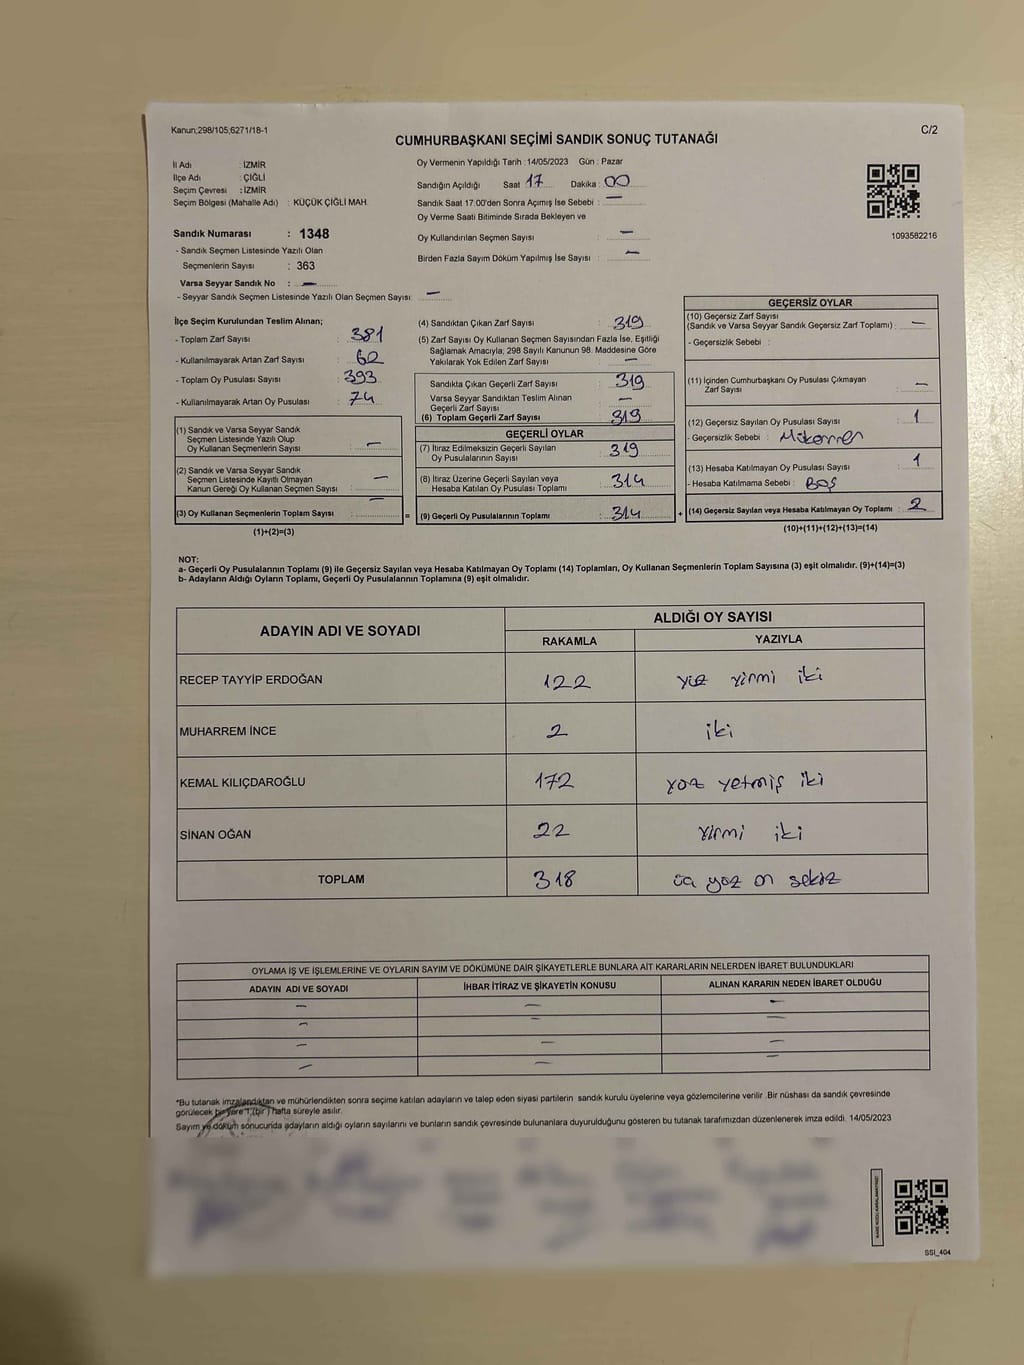 Kanun;298/105;6271/18-1
C/2
CUMHURBAŞKANI SEÇİMİ SANDIK SONUÇ TUTANAĞI
İl Adı : İZMİR
İlçe Adı : ÇİĞLİ
Seçim Çevresi : İZMİR
Seçim Bölgesi (Mahalle Adı) : KÜÇÜK ÇİĞLİ MAH.
Sandık Numarası : 1348
- Sandık Seçmen Listesinde Yazılı Olan
Seçmenlerin Sayısı : 363
Varsa Seyyar Sandık No : —
- Seyyar Sandık Seçmen Listesinde Yazılı Olan Seçmen Sayısı: —
Oy Vermenin Yapıldığı Tarih : 14/05/2023 Gün : Pazar
Sandığın Açıldığı Saat 17 Dakika : 00
Sandık Saat 17:00'den Sonra Açımış İse Sebebi : —
Oy Verme Saati Bitiminde Sırada Bekleyen ve
Oy Kullandırılan Seçmen Sayısı : —
Birden Fazla Sayım Döküm Yapılmış İse Sayısı : —
1093582216
İlçe Seçim Kurulundan Teslim Alınan;
- Toplam Zarf Sayısı : 381
- Kullanılmayarak Artan Zarf Sayısı : 62
- Toplam Oy Pusulası Sayısı : 393
- Kullanılmayarak Artan Oy Pusulası : 74
(1) Sandık ve Varsa Seyyar Sandık
Seçmen Listesinde Yazılı Olup
Oy Kullanan Seçmenlerin Sayısı : —
(2) Sandık ve Varsa Seyyar Sandık
Seçmen Listesinde Kayıtlı Olmayan
Kanun Gereği Oy Kullanan Seçmen Sayısı : —
(3) Oy Kullanan Seçmenlerin Toplam Sayısı : —
(1)+(2)=(3)
(4) Sandıktan Çıkan Zarf Sayısı : 319
(5) Zarf Sayısı Oy Kullanan Seçmen Sayısından Fazla İse, Eşitliği
Sağlamak Amacıyla, 298 Sayılı Kanunun 98. Maddesine Göre
Yakılarak Yok Edilen Zarf Sayısı : —
Sandıkta Çıkan Geçerli Zarf Sayısı : 319
Varsa Seyyar Sandıktan Teslim Alınan
Geçerli Zarf Sayısı : —
(6) Toplam Geçerli Zarf Sayısı : 319
GEÇERLİ OYLAR
(7) İtiraz Edilmeksizin Geçerli Sayılan
Oy Pusulalarının Sayısı : 319
(8) İtiraz Üzerine Geçerli Sayılan veya
Hesaba Katılan Oy Pusulası Toplamı : 314
= (9) Geçerli Oy Pusulalarının Toplamı : 314 +
GEÇERSİZ OYLAR
(10) Geçersiz Zarf Sayısı
(Sandık ve Varsa Seyyar Sandık Geçersiz Zarf Toplamı) : —
- Geçersizlik Sebebi :
(11) İçinden Cumhurbaşkanı Oy Pusulası Çıkmayan
Zarf Sayısı : —
(12) Geçersiz Sayılan Oy Pusulası Sayısı : 1
- Geçersizlik Sebebi :
(13) Hesaba Katılmayan Oy Pusulası Sayısı : 1
- Hesaba Katılmama Sebebi : BOŞ
(14) Geçersiz Sayılan veya Hesaba Katılmayan Oy Toplamı : 2
(10)+(11)+(12)+(13)=(14)
NOT:
a- Geçerli Oy Pusulalarının Toplamı (9) ile Geçersiz Sayılan veya Hesaba Katılmayan Oy Toplamı (14) Toplamları, Oy Kullanan Seçmenlerin Toplam Sayısına (3) eşit olmalıdır. (9)+(14)=(3)
b- Adayların Aldığı Oyların Toplamı, Geçerli Oy Pusulalarının Toplamına (9) eşit olmalıdır.
ADAYIN ADI VE SOYADI
ALDIĞI OY SAYISI
RAKAMLA YAZIYLA
RECEP TAYYİP ERDOĞAN 122 yüz yirmi iki
MUHARREM İNCE 2 iki
KEMAL KILIÇDAROĞLU 172 yüz yetmiş iki
SİNAN OĞAN 22 yirmi iki
TOPLAM 318 üç yüz on sekiz
OYLAMA İŞ VE İŞLEMLERİNE VE OYLARIN SAYIM VE DÖKÜMÜNE DAİR ŞİKAYETLERLE BUNLARA AİT KARARLARIN NELERDEN İBARET BULUNDUKLARI
ADAYIN ADI VE SOYADI İHBAR İTİRAZ VE ŞİKAYETİN KONUSU ALINAN KARARIN NEDEN İBARET OLDUĞU
— — —
— — —
— — —
— — —
*Bu tutanak imzalandıktan ve mühürlendikten sonra seçime katılan adayların ve talep eden siyasi partilerin sandık kurulu üyelerine veya gözlemcilerine verilir .Bir nüshası da sandık çevresinde
görülecek bir yere 1 (bir ) hafta süreyle asılır.
Sayım ve döküm sonucunda adayların aldığı oyların sayılarını ve bunların sandık çevresinde bulunanlara duyurulduğunu gösteren bu tutanak tarafımızdan düzenlenerek imza edildi. 14/05/2023
SSI_404